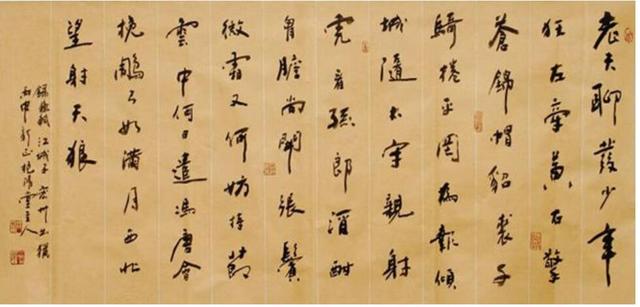 老夫聊發少年
狂左牽黃右擎
蒼錦帽貂裘千
騎捲平岡為報傾
城隨太守親射
虎看孫郎酒酣
胷膽尚開張鬢
微霜又何妨持節
雲中何日遣馮唐會
挽鵰弓如滿月西北
望射天狼
錄蘇軾江城子密州出獵
丙申新正主人